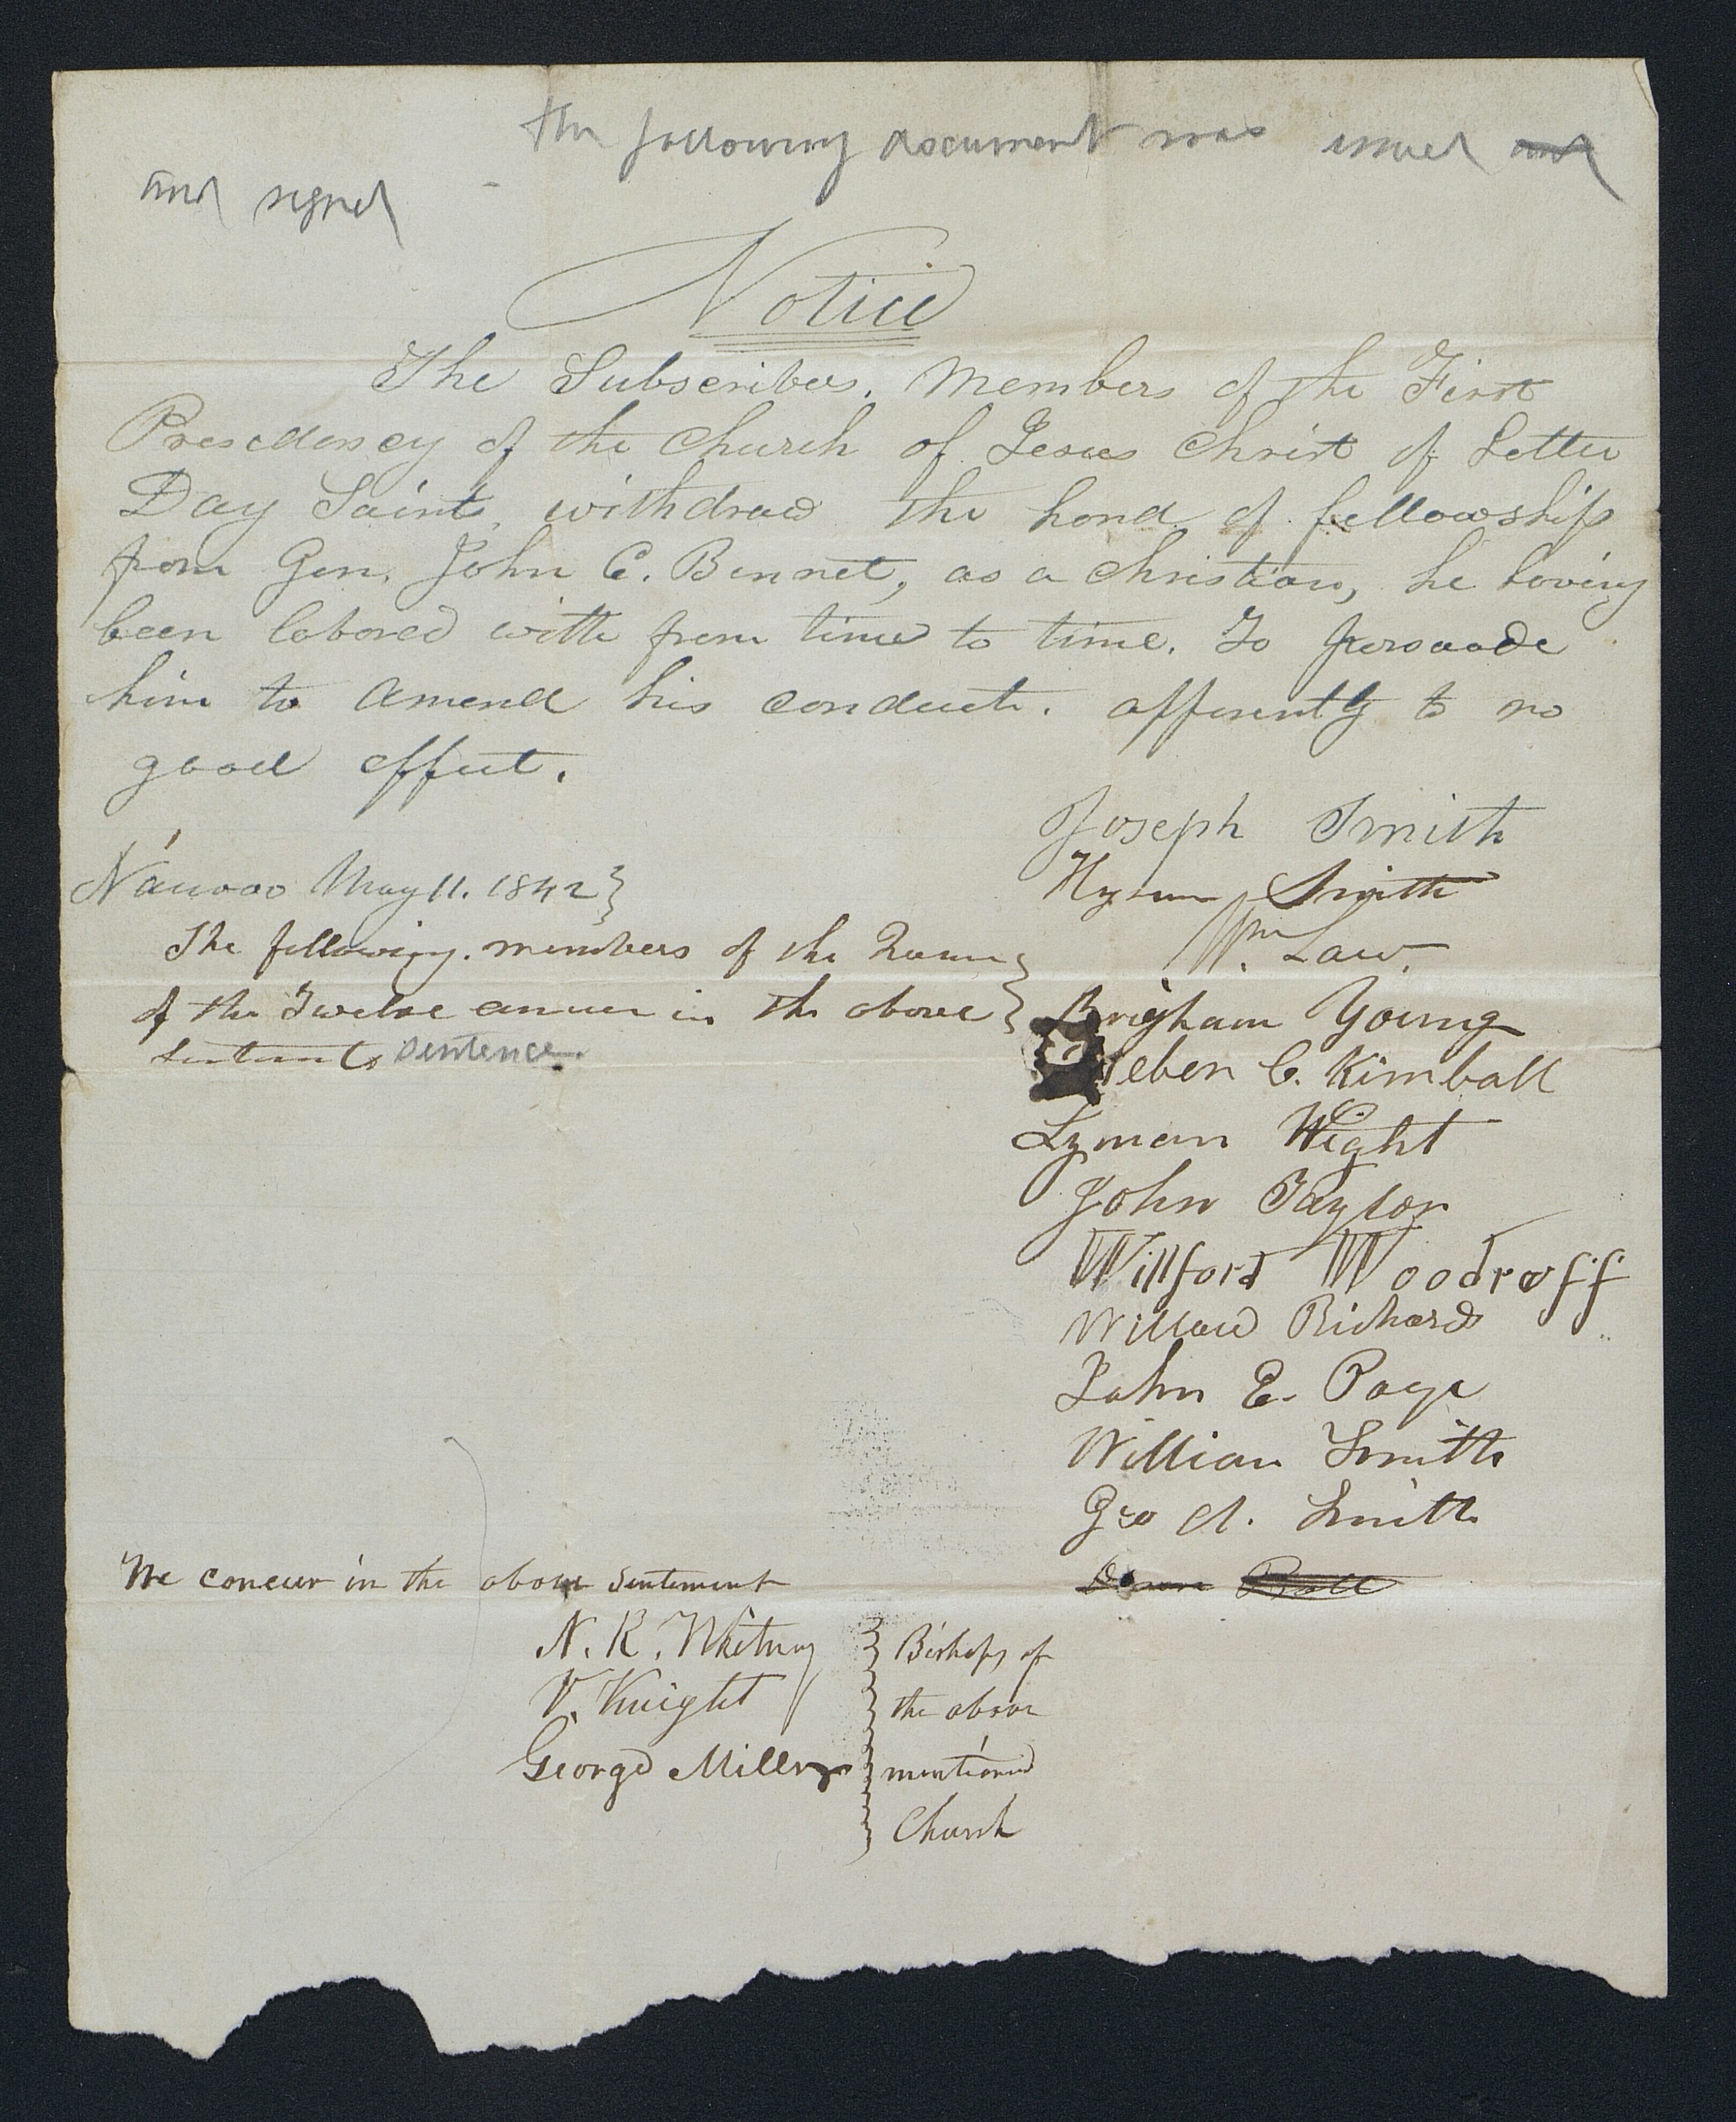 The following document was issued and
and signed -
Notice
The Subscribers, Members of the First
Presidency of the Church of Jesus Christ of Latter
Day Saints, withdraw the hand of fellowship
from Gen. John C. Bennet, as a Christian, he having
been labored with from time to time. To persuade
him to amend his conduct. apperently to no
good effect.
Joseph Smith
Nauvoo May 11. 1842
Hyrum Smith
Wm Law.
The following members of the Quorum
of the Twelve concur in the above
Brigham Young
sentiments sentence.
Heber C. Kimball
Lyman Wight
John Taylor
Willford Woodruff
Willard Richards
John E. Page
William Smith
Geo A. Smith
We concur in the above sentiment
N. K. Whitney
V. Knight
George Miller
Bishops of
the above
mentioned
Church